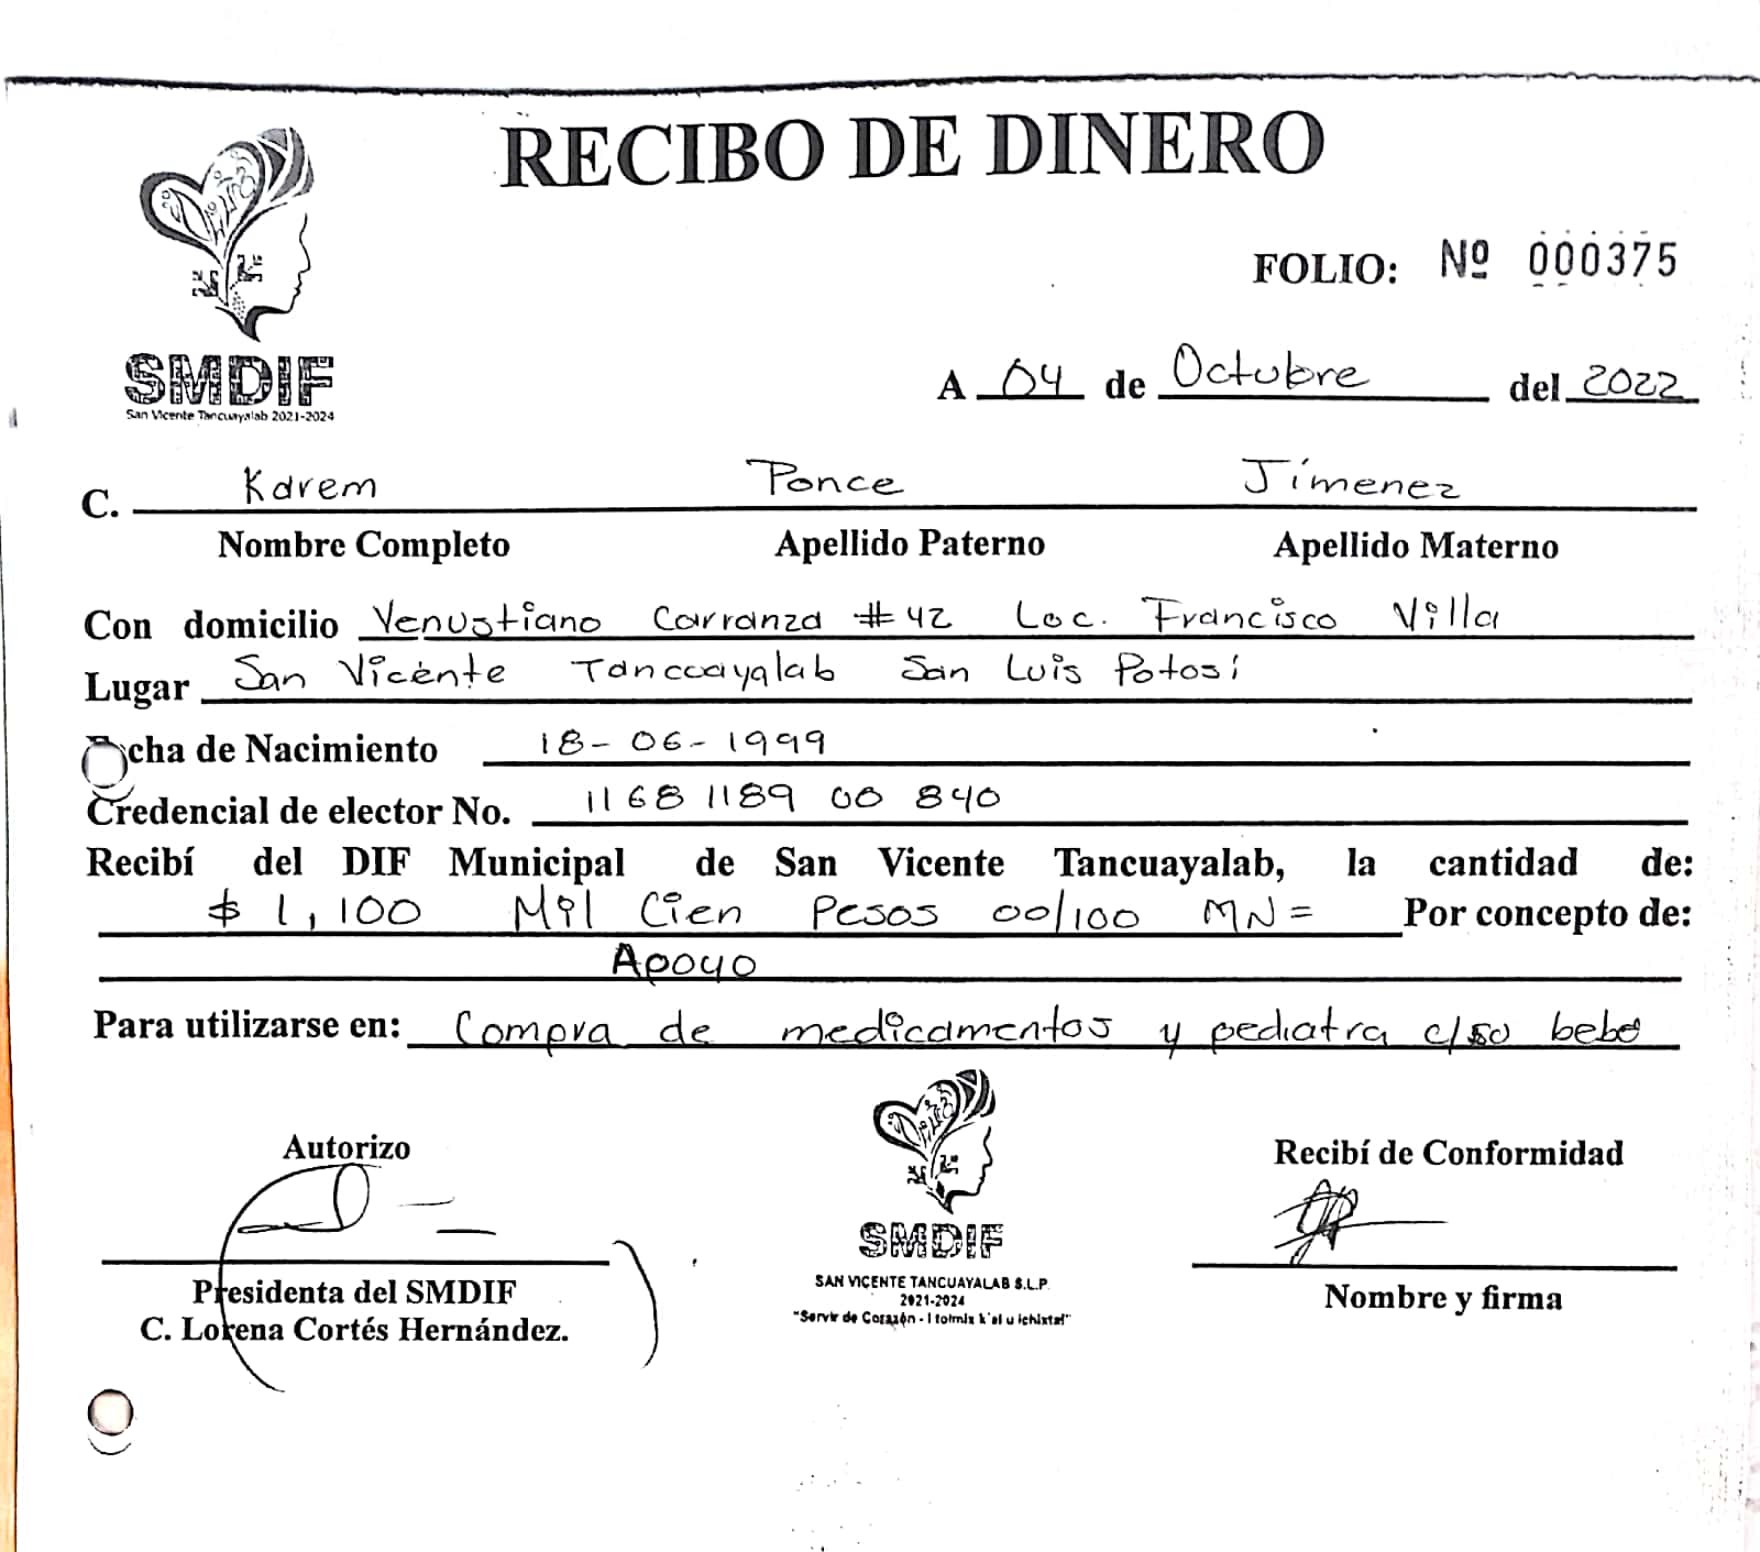 RECIBO DE DINERO
FOLIO: Nº 000375
SMDIF
San Vicente Tancuayalab 2021-2024
A 04 de Octubre del 2022
C. Karem Ponce Jímenez
Nombre Completo Apellido Paterno Apellido Materno
Con domicilio Venustiano Carranza #42 Loc. Francisco Villa
Lugar San Vicente Tancuayalab San Luis Potosi
cha de Nacimiento 18-06-1999
Credencial de elector No. 1168 1189 00 840
Recibí del DIF Municipal de San Vicente Tancuayalab, la cantidad de:
$ 1,100 Mil Cien Pesos 00/100 MN= Por concepto de:
Apoyo
Para utilizarse en: Compra de medicamentos y pediatra c/su bebe
Autorizo
Recibí de Conformidad
SMDIF
SAN VICENTE TANCUAYALAB S.L.P.
2021-2024
"Servir de Corazón -
Presidenta del SMDIF
C. Lorena Cortés Hernández.
Nombre y firma